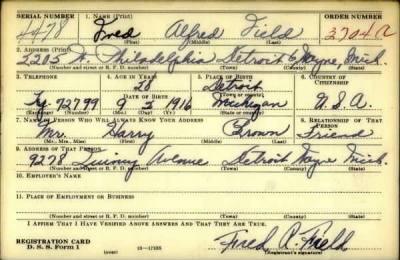 SERIAL NUMBER 1. NAME (Print) ORDER NUMBER
4478 Fred Alfred Field 3704 A
(First) (Middle) (Last)
2. ADDRESS (Print)
2205 W. Philadelphia Detroit 6 Wayne, Mich.
(Number and street or R. F. D. number) (Town) (County) (State)
3. TELEPHONE 4. AGE IN YEARS 5. PLACE OF BIRTH 6. COUNTRY OF CITIZENSHIP
Detroit
DATE OF BIRTH (Town or county)
Ty. 92799 9 1916 Michigan U.S.A.
(Exchange) (Number) (Mo.) (Day) (Yr.) (State or country)
7. NAME OF PERSON WHO WILL ALWAYS KNOW YOUR ADDRESS 8. RELATIONSHIP OF THAT PERSON
Mr. Harry Brown Friend
(Mr., Mrs., Miss) (First) (Middle) (Last)
9. ADDRESS OF THAT PERSON
9278 Quincy Avenue Detroit Wayne Mich.
(Number and street or R. F. D. number) (Town) (County) (State)
10. EMPLOYER'S NAME
11. PLACE OF EMPLOYMENT OR BUSINESS
(Number and street or R. F. D. number) (Town) (County) (State)
I AFFIRM THAT I HAVE VERIFIED ABOVE ANSWERS AND THAT THEY ARE TRUE.
REGISTRATION CARD
D. S. S. Form 1 (over) Fred A. Field
(Registrant's signature)